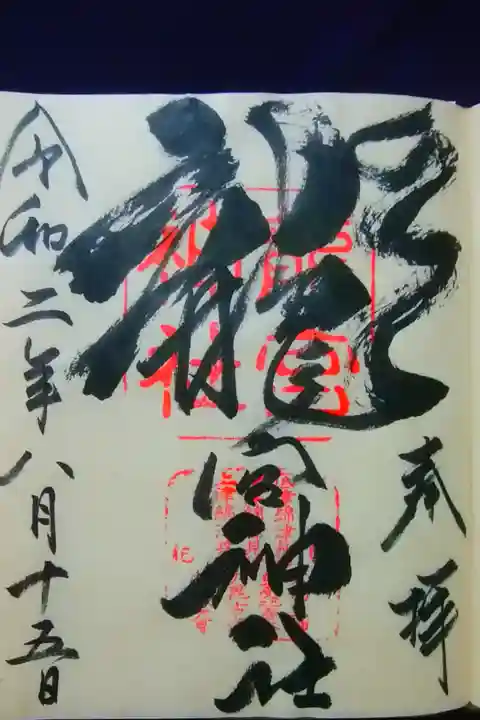 奉拝
龍宮神社
龍宮
神社
令和二年八月十五日